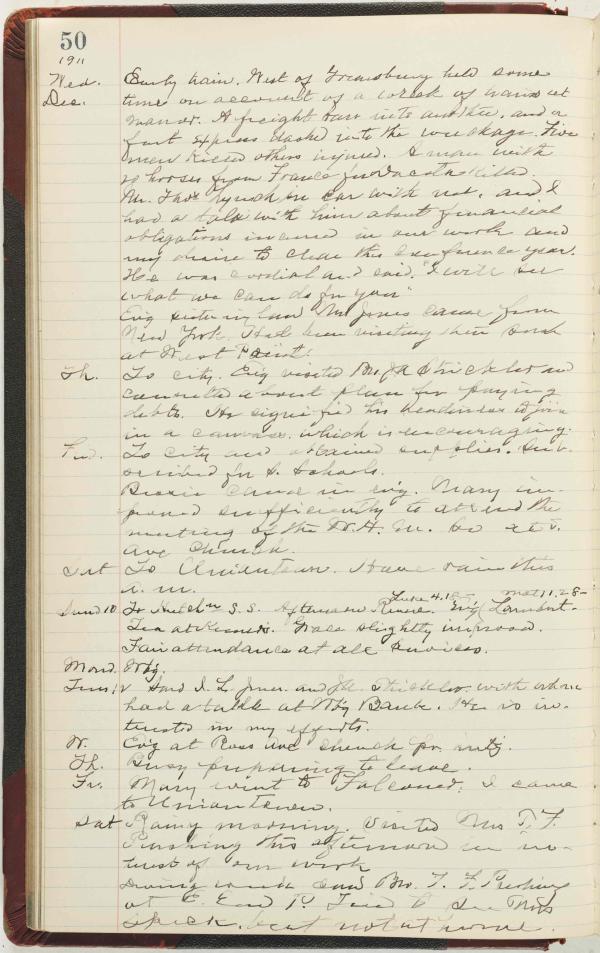 50
1911
Wed. Early train. West of Greensburg held some
Dec. time on account of a wreck of trains at
Manor. A freight ran into another, and a
fast express dashed into the wreckage. Five
men killed others injured. A man with
20 horses from France for Dacota killed.
Mr. Thos Lynch in car with us, and I
had a talk with him about financial
obligations incured in our work and
my desire to clear this conference year.
He was cordial and said, "I will see
what we can do for you"
Evg sister in law Mrs Jones came from
New York. Had been visiting their son
at West Point.
Th. To city. Evg visited Bro. JA Strickler and
consulted about plan for paying
debts. He signified his readiness to join
in a canvass, which is encouraging.
Frd. To city and obtained supplies. Sub-
scribed for S. Schools.
Bessie came in evg. Mary im-
proved sufficiently to attend the
meeting of the W. H. M. So at
Ave Church.
Sat To Uniontown. Have rain this
a. m.
Luke 4.18- Mat 11.28-
Sund 10 To S. S. Afternoon Evg Lambert-
Tea at Grace slightly improved.
Fair attendance at all services.
Mond. Wbg.
Tues 12 Saw I. L. Jones and JA Strickler with whom
had a talk at Wbg Bank. He is in-
terested in my efforts.
W. Evg at Ross Ave church pr. mtg.
Th. Busy preparing to leave.
Fr. Mary went to Falconer. I came
to Uniontown.
Sat Rainy morning. Visited Mrs T. F.
this afternoon in in-
terest of our work
During week saw Bro. T. F.
at E. End P. to see Mrs
Speck, but not at home.